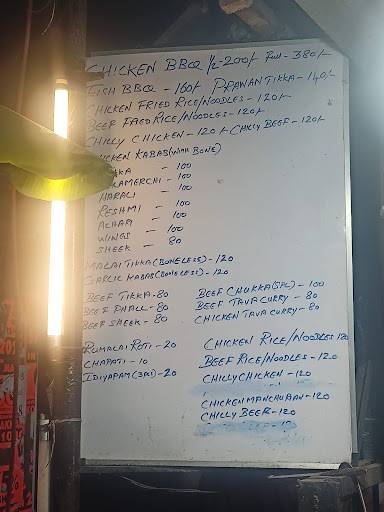 CHICKEN BBQ ½-200/- Full-380/-
FISH BBQ - 160/- PRAWAN TIKKA - 140/-
CHICKEN FRIED RICE/NOODLES - 120/-
BEEF FRIED RICE/NOODLES - 120/-
CHILLY CHICKEN - 120/- CHILLY BEEF - 120/-
CHICKEN KABAB (WITH BONE)
- 100
- 100
HARALI - 100
RESHMI - 100
ACHARI - 100
WINGS - 100
SHEEK - 80
MALAI TIKKA (BONELESS) - 120
GARLIC KABAB (BONELESS) - 120
BEEF TIKKA - 80 BEEF CHUKKA (SPL) - 100
BEEF PHALL - 80 BEEF TAVA CURRY - 80
BEEF SHEEK - 80 CHICKEN TAVA CURRY - 80
RUMALAI ROTI - 20 CHICKEN RICE/NOODLES 120
CHAPATI - 10 BEEF RICE/NOODLES - 120
IDIYAPAM (3PS) - 20 CHILLY CHICKEN - 120
CHICKEN MANCHURIAN - 120
CHILLY BEEF - 120